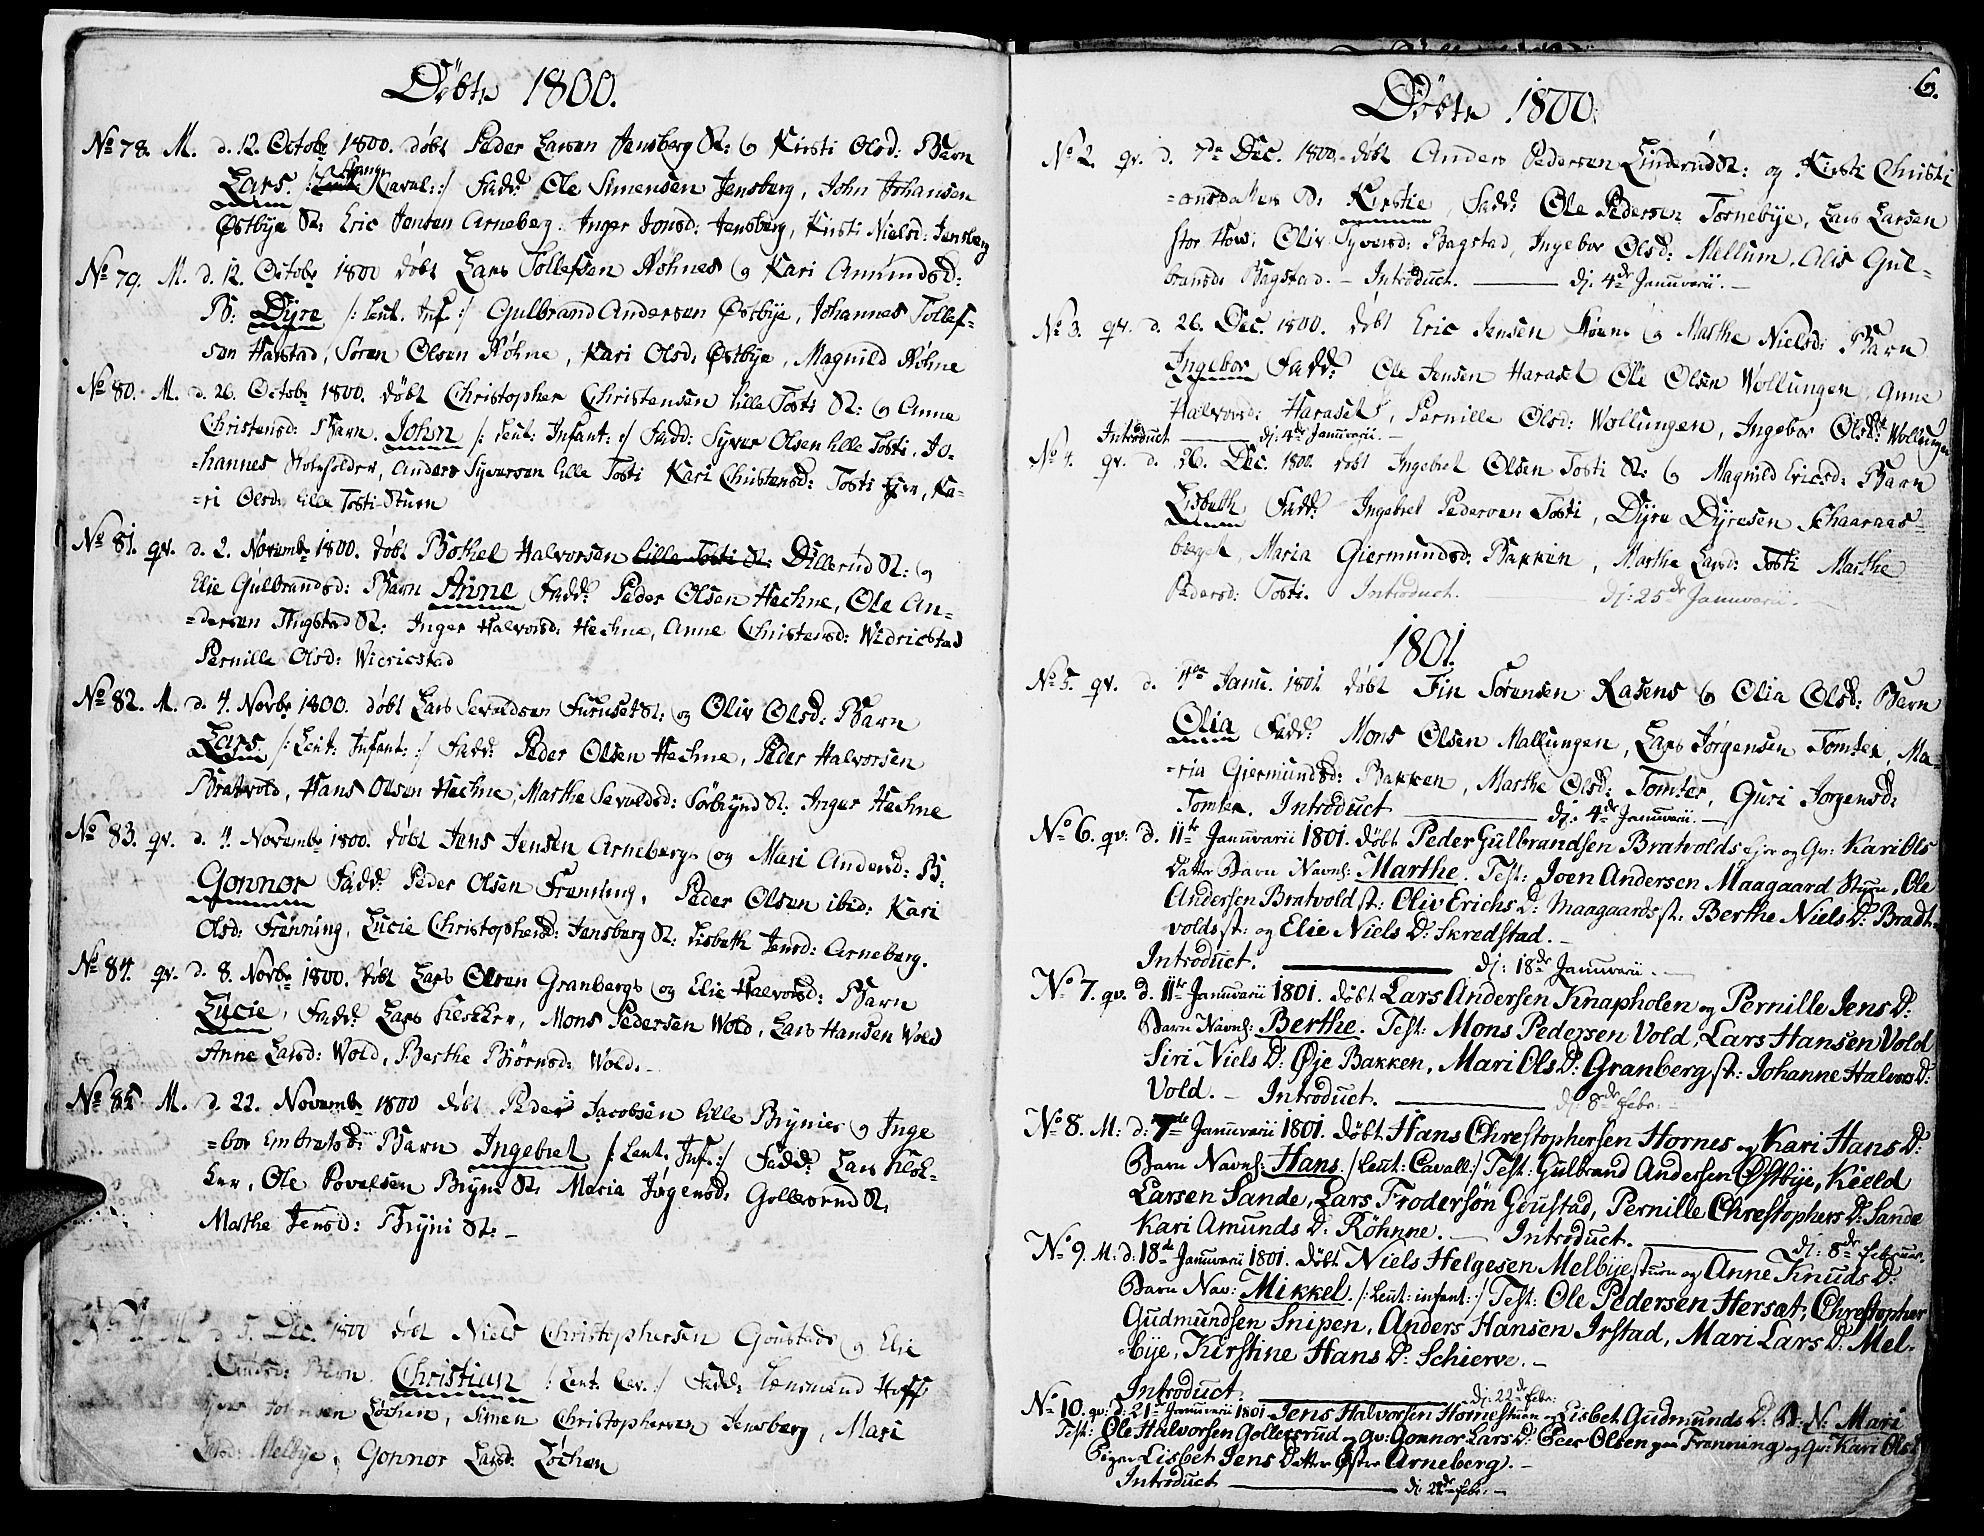 Döbte 1800.
No 78. M. d. 12. Octobr 1800. døbt Peder Larsen Jensberg St: og Kirsti Olsd: Barn
Lars. Caval:/ Fadd: Ole Simensen Jensberg, John Johansen
Østbye St: Eric Jensen Arneberg. Inger Jonsd: Jensberg, Kirsti Nielsd: Jensberg
No 79. M. d. 12. Octobr 1800 døbt Lars Tollefsen Röhnes og Kari Amundsd:
B: Dyre /: Leut. Inf :/ Gulbrand Andersen Østbye, Johannes Tollef=
sen Harstad, Soren Olsen Röhne, Kari Olsd: Østbye, Magnild Röhne
No 80. M. d. 26. Octobr 1800. døbt Christopher Christensen lille Tosti St: og Anne
Christensd: Barn. John /: Leut: Infant: :/ Fadd: Syver Olsen lille Tosti, Jo-
=hannes, Anders Syversen lille Tosti Kari Christensd: Tosti Ejer, Ka-
=ri Olsd: lille Tosti-Stuen
No 81. qv. d. 2. Novembr 1800. døbt Bottel Halvorsen lille Tosti St: Dillerud St: og
Elie Gulbrandsd: Barn Anne Fadd: Peder Olsen Hechne, Ole An-
=dersen Tingstad St: Inger Halvorsd: Hechne, Anne Christensd: Widricstad
Pernille Olsd: Widricstad
No 82. M. d. 4. Novbr 1800. døbt Lars Sevaldsen Furuset St: og Oliv Olsd: Barn
Lars /: Leut: Infant: :/ Fadd: Peder Olsen Hechne, Peder Halvorsen
Bratvold, Hans Olsen Hechne, Marthe Sevaldsd: Sörbrynd St: Inger Hechne
No 83. qv. d. 4. Novembr 1800. døbt Jens Jensen Arnebergs og Mari Andersd: B:
Gonnor Fadd: Peder Olsen Frenning, Peder Olsen ibid: Kari
Olsd: Frenning, Lucie Christophersd: Jensberg St: Lisbeth Jensd: Arneberg.
No 84. qv. d. 8. Novbr 1800. døbt Lars Olsen Granbergs og Elie Halvorsd: Barn
Lucie, Fadd: Lars Klokker, Mons Pedersen Wold, Lars Hansen Wold
Anne Larsd: Wold, Berthe Björnsd: Wold.-
No 85 M. d. 22. Novembr 1800 døbt Peder Jacobsen lille Brynies og Inge
=bor Embretsd: Barn Ingebret /: Leut. Inf. :/ Fadd: Lars Klok=
ker, Ole Povelsen Bryni St: Maria Jögensd: Gollersrud St:
Marthe Jensd: Bryni St: -
No 1. M. d 5. Dec. 1800 døbt Niels Christophersen Goustads og Elie
Barn. Christian /: Leut: Cav. :/ Fadd: Lensmand Hoff
Löchen, Simen Christophersen Jensberg, Mari
Melbye, Gonnor Larsd: Löchen
6.
Döbte 1800.
No 2. qv. d. 7de Dec. 1800. døbt Anders Pedersen Linderud St: og Kirsti Christi
=ansdatters B: Kirstie, Fadd: Ole Pedersen Tornebye, Lars Larsen
stor Hov: Oliv Syversd: Bagstad, Ingebor Olsd: Mellum, Alis Gul-
bransd: Bagstad. - Introduct. —— dj. 4de Januvarii. -
No 3. qv. d. 26. Dec. 1800. døbt Eric Jensen og Marthe Nielsd: Barn
Ingebor Fadd: Ole Jensen Haraset Ole Olsen Wollungen, Anne
Halvorsd: Haraset, Pernille Olsd: Wollungen, Ingebor Olsd: Wollungen
Introduct —— dj. 4de Januvarii. -
No 4. qv. d. 26. Dec. 1800. døbt Ingebret Olsen Tosti St: og Magnild Ericsd: Barn
Lisbeth Fadd: Ingebret Pedersen Tosti, Dyre Dyresen Schaaraas=
berget, Maria Giermundsd: Bakken, Marthe Larsd: Tosti Marthe
Pedersd: Tosti. Introduct. —— dj: 25de Januvarii. -
1801.
No 5. qv. d. 4de Janu. 1801. døbt Fin Sörensen Rasens og Olia Olsd: Barn
Olia Fadd: Mons Olsen Mallungen, Lars Jörgensen Tomter, Ma-
=ria Giermundsd: Bakken, Marthe Olsd: Tomter, Guri Jorgensd:
Tomter. Introduct —— dj. 4de Januvarii. -
No 6. qv: d. 11te Januvarii 1801. døbt Peder Gulbrandsen Bratvolds Ejer og Qv: Kari Ols
Datter Barn Navnl: Marthe. Test: Joen Andersen Maagaard Stuen, Ole
Andersen Bratvold st: Oliv Erichs D: Maagaards st: Berthe Niels D: Bradt=
volds st: og Elie Niels D: Skredstad. -
Introduct. —— dj: 18de Januvarii. -
No 7. qv. d. 11te Januvarii 1801. døbt Lars Andersen Knapholen og Pernille Jens D:
Barn Navnl: Berthe. Test: Mons Pedersen Vold, Lars Hansen Vold
Siri Niels D: Øje Bakken, Mari Ols D: Granberg st: Johanne Halvors D:
Vold. - Introduct. —— dj: 8de Febr: -
No 8. M: d: 7de Januvarii 1801. døbt Hans Chrestophersen Hornes og Kari Hans D:
Barn Navnl: Hans. /: Leut: Cavall:/ Test: Gulbrand Andersen Østbije, Kield
Larsen Sande, Lars Frodersøn Goustad, Pernille Chrestophers D: Sande
Kari Amunds D: Röhnne. - Introduct. —— dj: 8de Februar.
No 9. M: d: 18de Januvarii 1801. døbt Niels Helgesen Melbije stuen og Anne Knuds D:
Barn Nav: Mikkel. /: Leut: infant: :/ Test: Ole Pedersen Hersæt, Chrestopher
Gudmundsen Snipen, Anders Hansen Irstad, Mari Lars D: Mel.
=bije, Kirstine Hans D: Schierve. -
Introduct. —— dj: 22de Febr:
No 10. qv: d: 21de Januvarii 1801. Jens Halvorsen Horne stuen og Lisbet Gudmunds D: B: N: Mari
Test: Ole Halvorsen Gollersrud og qv: Gonnor Lars D: Peer Olsen Frønning og Qv: Kari Ols D
Pigen Lisbet Jens Datter Øster Arneberg. -
Introduct —— dj 22de Febr. -